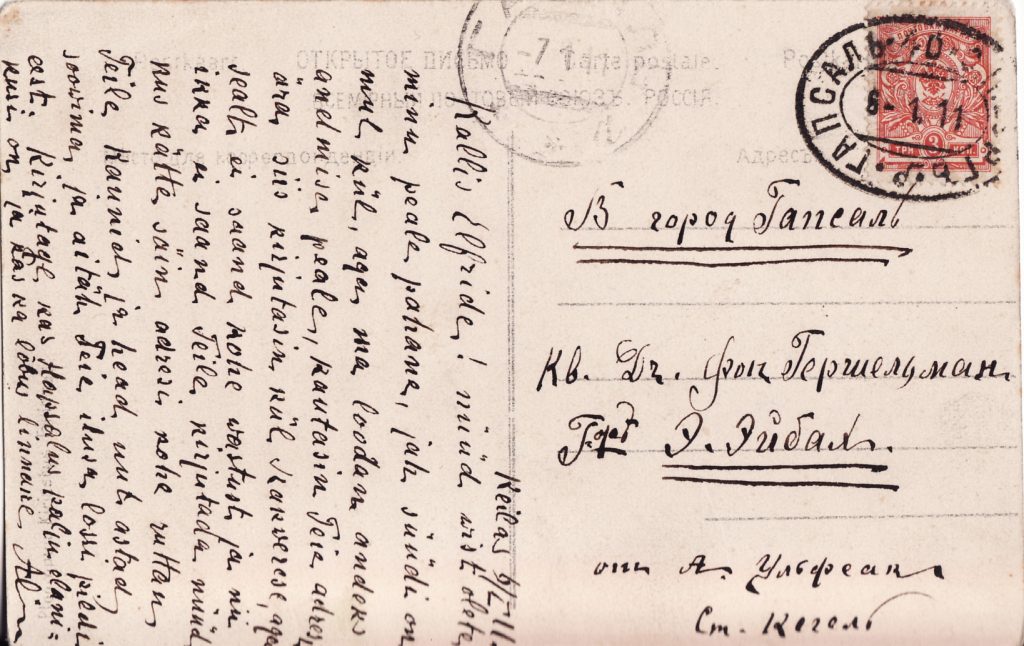 ОТКРЫТОЕ ПИСЬМО Carte postale.
ВСЕМІРНЫЙ ПОЧТОВЫЙ СОЮЗЪ. РОССІЯ.
Мѣсто для корреспонденціи.
Адресъ
ГАПСАЛЬ
6-1.11
-7 1
ТРИ 3 КОП.
Keilas 6/I-11.
Kallis Elfride! nüüd wist olete
minu peale pahane, jah süüdi on
mul kül, aga ma loodan andeks
andmise peale, kautasin Teie adresi
ära, siis kirjutasin kül Rakverese, aga
sealt ei saand kohe wastust ja nii
ikka ei saand Teile kirjutada nüüd
kus kätte säin adresi kohe ruttan
Teile kaunist ja head uut astad
soowima ja aitäh Teie ilusa lossi pildi
est. Kirjutage kas Hapsalus palju elani=
kusi on ja kas ka lõbus linnake.
В город Гапсаль
Кв. Др. фон Гершельман
Э. Эйбах.
от А. Ульфсак
Ст. Кегель